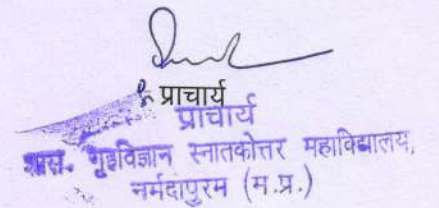 प्राचार्य
प्राचार्य
शास. गृहविज्ञान स्नातकोत्तर महाविद्यालय,
नर्मदापुरम (म.प्र.)